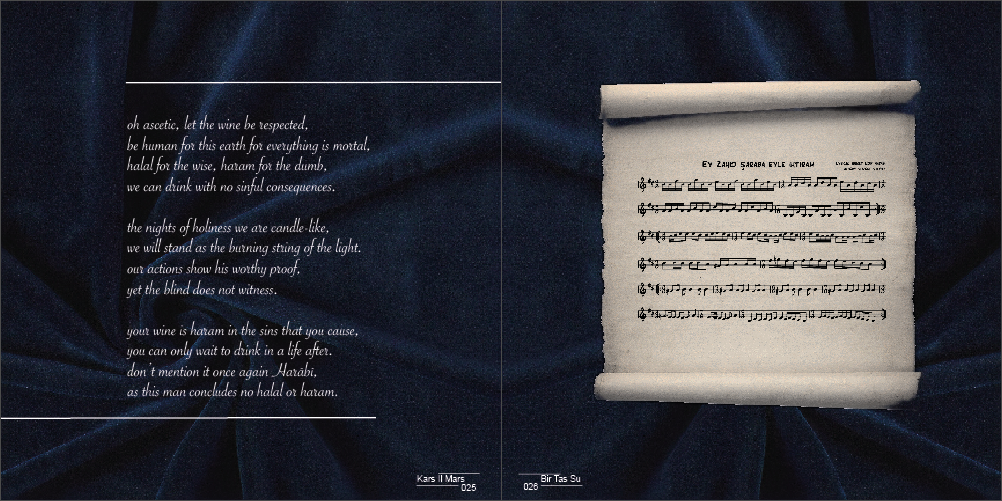 oh ascetic, let the wine be respected,
be human for this earth for everything is mortal,
halal for the wise, haram for the dumb,
we can drink with no sinful consequences.
the nights of holiness we are candle-like,
we will stand as the burning string of the light.
our actions show his worthy proof,
yet the blind does not witness.
your wine is haram in the sins that you cause,
you can only wait to drink in a life after.
don't mention it once again Harâbi,
as this man concludes no halal or haram.
Kars II Mars
025
Ey Zahid Şaraba eyle ihtiram
026
Bir Tas Su